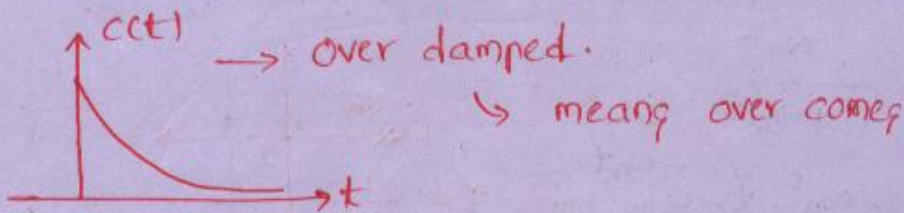 c(t)
→ over damped.
↳ means over comes
t